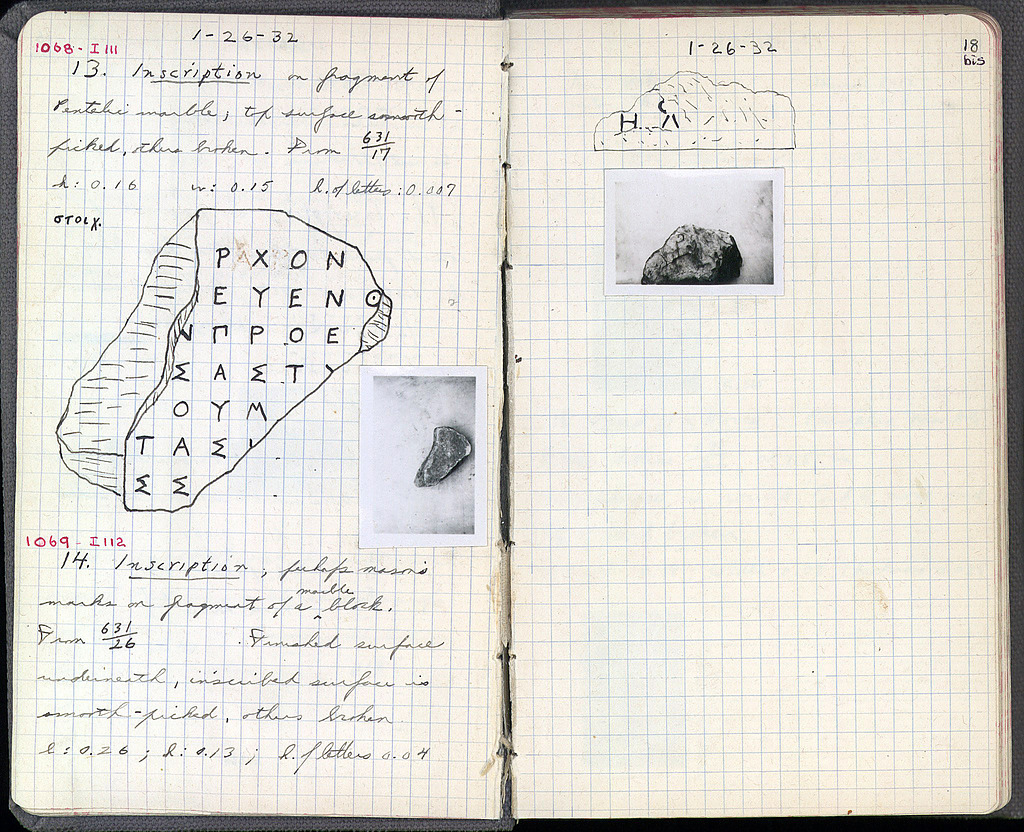 1-26-32
1068 - I 111
13. Inscription on fragment of
Pentelic marble; top surface smooth-
picked, others broken. From 631/17
h: 0.16 w: 0.15 h. of letters: 0.007
στοιχ.
Ρ Χ Ο Ν
Ε Υ Ε Ν Ο
Ν Π Ρ Ο Ε
Σ Α Σ Τ Υ
Ο Υ Μ
Τ Α Σ
Σ Σ
1
2
1069 - I 112
14. Inscription; perhaps mason's
marks on fragment of a marble block.
From 631/26 . Finished surface
underneath, inscribed surface is
smooth-picked, others broken.
l: 0.26; h: 0.13; h. of letters 0.04
1-26-32
18
bis
Η